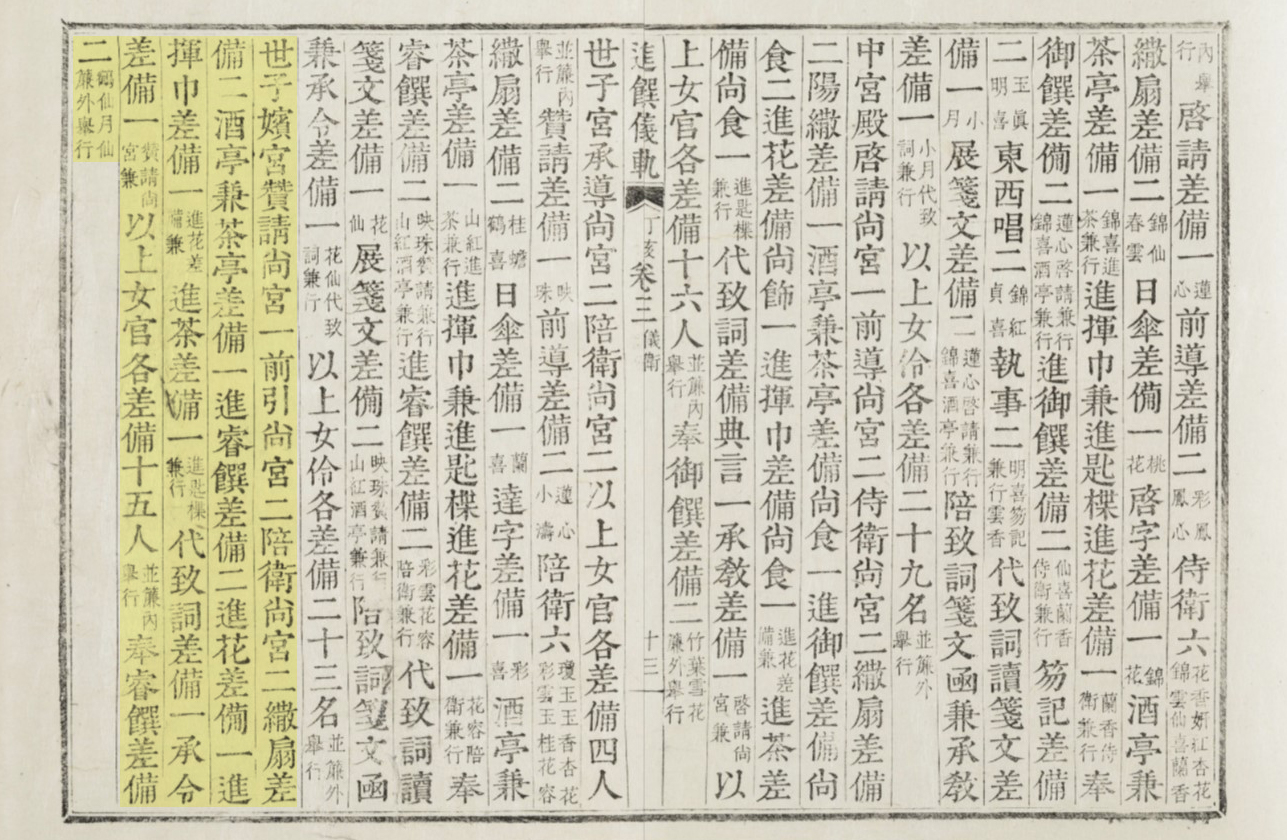 內舉行啓請差備一蓮心前導差備二彩鳳鳳心侍衛六花香姸紅杏花錦雲仙喜蘭香
繖扇差備二錦仙春雲日傘差備一桃花啓字差備一錦花酒亭兼
茶亭差備一錦喜進茶兼行進揮巾兼進匙楪進花差備一蘭香侍衛兼行奉
御饌差備二蓮心啓請兼行錦喜酒亭兼行進御饌差備二仙喜蘭香侍衛兼行笏記差備
二玉眞明喜東西唱二錦紅貞喜執事二明喜笏記兼行雲香代致詞讀箋文差
備一小月展箋文差備二蓮心啓請兼行錦喜酒亭兼行陪致詞箋文凾兼承敎
差備一小月代致詞兼行以上女伶各差備二十九名並簾外舉行
中宮殿啓請尙宮一前導尙宮二侍衛尙宮二繖扇差備
二陽繖差備一酒亭兼茶亭差備尙食一進御饌差備尙
食二進花差備尙飾一進揮巾差備尙食一進花差備兼進茶差
備尙食一進匙楪兼行代致詞差備典言一承敎差備一啓請尙宮兼以
上女官各差備十六人並簾內舉行奉御饌差備二竹葉雪花簾外舉行
進饌儀軌 丁亥 卷二 儀衛 十三
世子宮承導尙宮二陪衛尙宮二以上女官各差備四人
並簾內舉行贊請差備一映珠前導差備二蓮心小濤陪衛六瓊玉玉香杏花彩雲玉桂花容
繖扇差備二桂蟾鶴喜日傘差備一蘭喜達字差備一彩喜酒亭兼
茶亭差備一山紅進茶兼行進揮巾兼進匙楪進花差備一花容陪衛兼行奉
睿饌差備二映珠贊請兼行山紅酒亭兼行進睿饌差備二彩雲花容陪衛兼行代致詞讀
箋文差備一花仙展箋文差備二映珠贊請兼行山紅酒亭兼行陪致詞箋文凾
兼承令差備一花仙代致詞兼行以上女伶各差備二十三名並簾外舉行
世子嬪宮贊請尙宮一前引尙宮二陪衛尙宮二繖扇差
備二酒亭兼茶亭差備一進睿饌差備二進花差備一進
揮巾差備一進花差備兼進茶差備一進匙楪兼行代致詞差備一承令
差備一贊請尙宮兼以上女官各差備十五人並簾內舉行奉睿饌差備
二鶴仙月仙簾外舉行